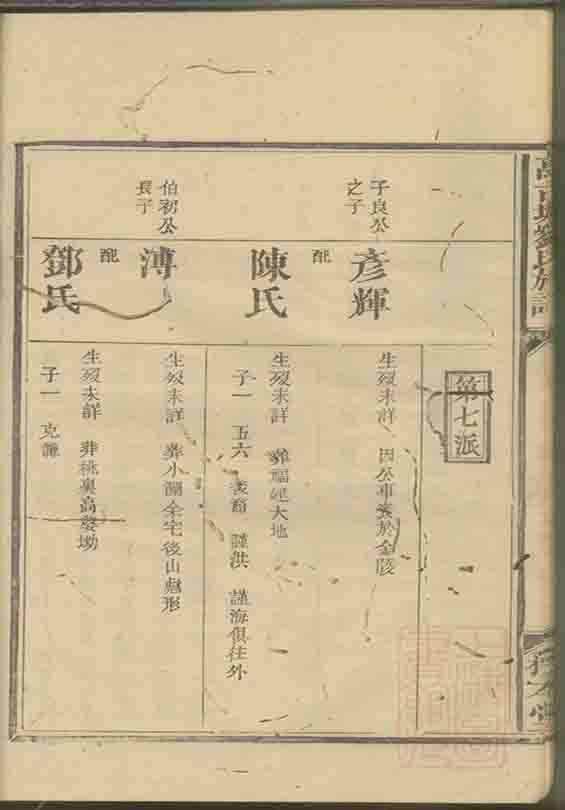 劉氏族譜
第七派
子良公
之子
彥輝
生歿未詳 因公事葬於金陵
配
陳氏
生歿未詳 葬福延大地
子一 五六 謹洪 謹海俱往外
伯初公
長子
溥
生歿未詳 葬小澗余宅後山形
配
鄧氏
生歿未詳 葬桃 高 坳
子一 克謙
一